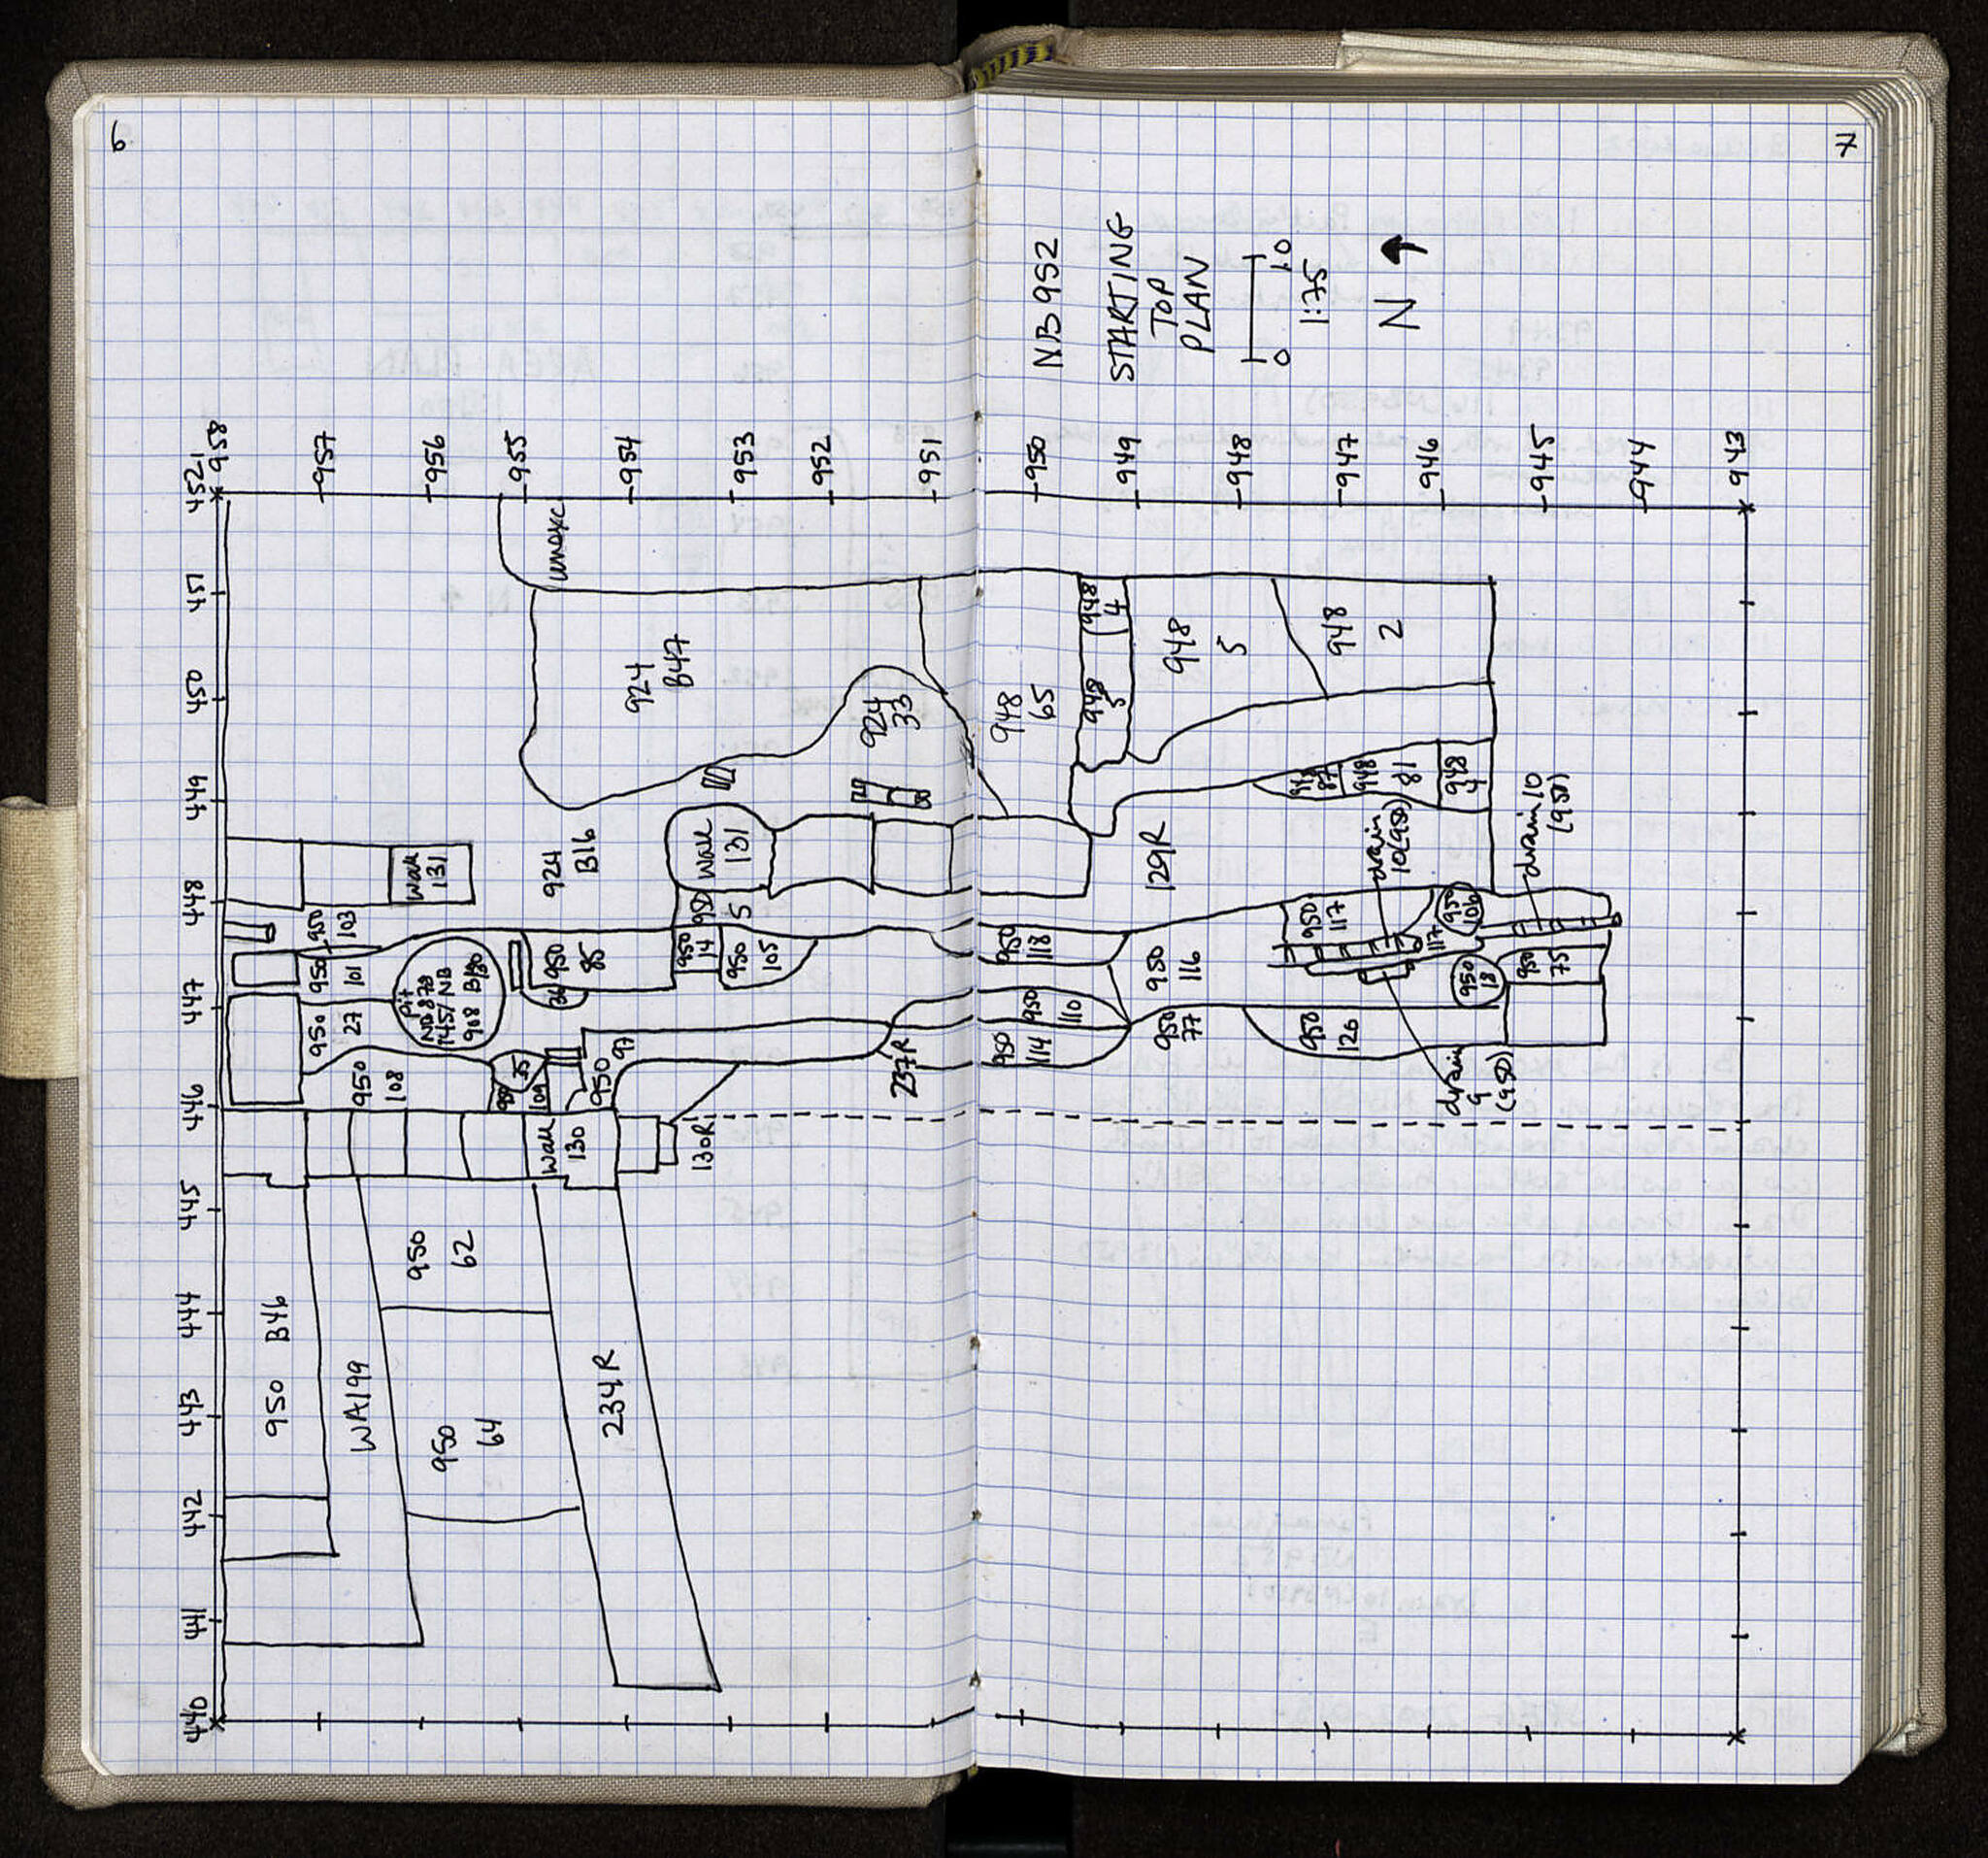 6
7
NB 952
STARTING
TOP
PLAN
0 1.0
1:75
N
452
451
450
449
448
447
446
445
444
443
442
441
440
958
957
956
955
954
953
952
951
950
949
948
947
946
945
944
943
unexc
924
B47
924
33
948
65
948
4
948
5
948
5
948
2
948
81
948
4
Wall
131
924
B16
Wall
131
950
5
129R
drain
10(950)
drain 10
(950)
950
103
950
101
950
27
950
108
pit
NB 878
145/NB
908 B180
950
85
36
950
14
950
105
950
118
950
116
950
117
117
950
106
950
18
950
75
35
109
950
97
237R
950
114
950
110
950
77
950
126
drain
9
(950)
Wall
130
130R
950 B46
WA199
950
62
950
64
234R